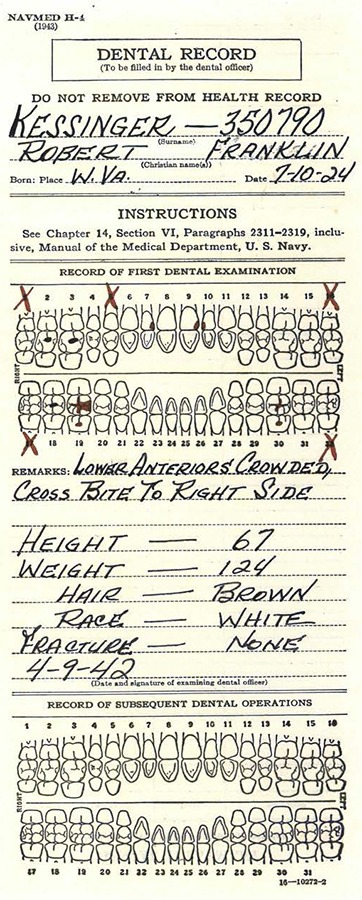 NAVMED H-4
(1943)
DENTAL RECORD
(To be filled in by the dental officer)
DO NOT REMOVE FROM HEALTH RECORD
KESSINGER — 350790
(Surname)
ROBERT FRANKLIN
(Christian name(s))
Born: Place W. VA. Date 7-10-24
INSTRUCTIONS
See Chapter 14, Section VI, Paragraphs 2311–2319, inclu-
sive, Manual of the Medical Department, U. S. Navy.
RECORD OF FIRST DENTAL EXAMINATION
2 3 4 6 7 8 9 10 11 12 13 14 15
RIGHT LEFT
18 19 20 21 22 23 24 25 26 27 28 29 30 31
REMARKS: LOWER ANTERIORS CROWDED,
CROSS BITE TO RIGHT SIDE
HEIGHT — 67
WEIGHT — 124
HAIR — BROWN
RACE — WHITE
FRACTURE — NONE
4-9-42
(Date and signature of examining dental officer)
RECORD OF SUBSEQUENT DENTAL OPERATIONS
1 2 3 4 5 6 7 8 9 10 11 12 13 14 15 16
RIGHT LEFT
17 18 19 20 21 22 23 24 25 26 27 28 29 30 31 32
16—10272-2